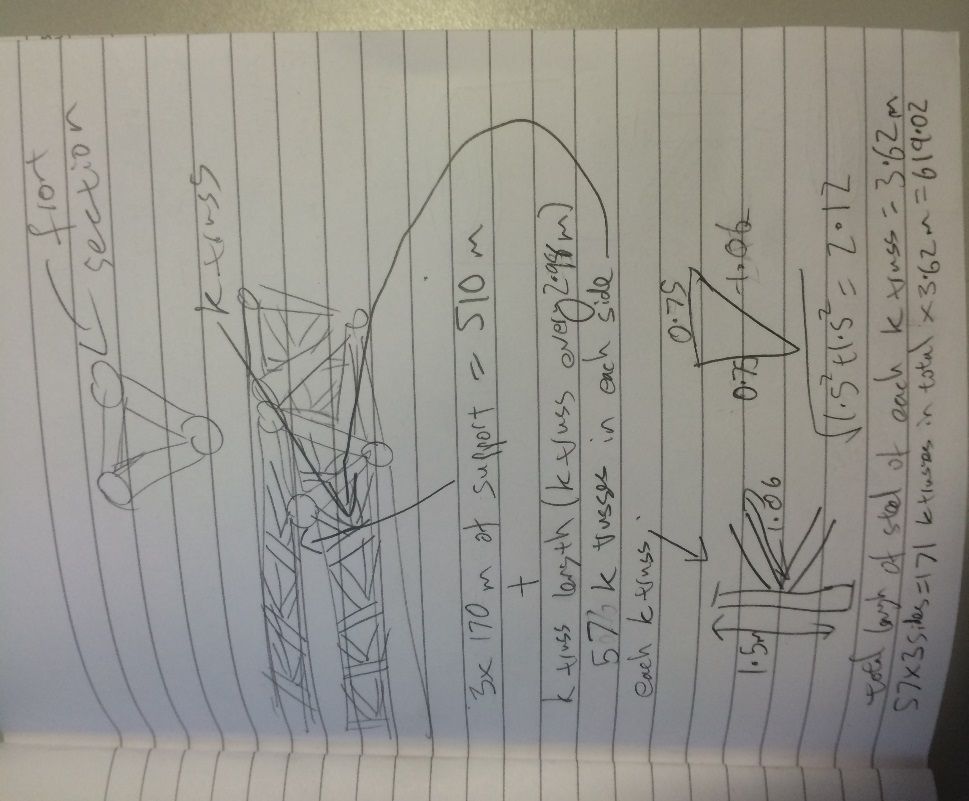 front
section
k truss
3x 170 m of support = 510 m
+
k truss length (k truss every 2.98m)
57 k trusses in each side
each k truss
1.5m
1.06
0.75
0.75
1.06
√1.5²+1.5² = 2.12
total length of steel of each k truss = 3.62 m
57 x 3 sides = 171 k trusses in total x 3.62 m = 619.02